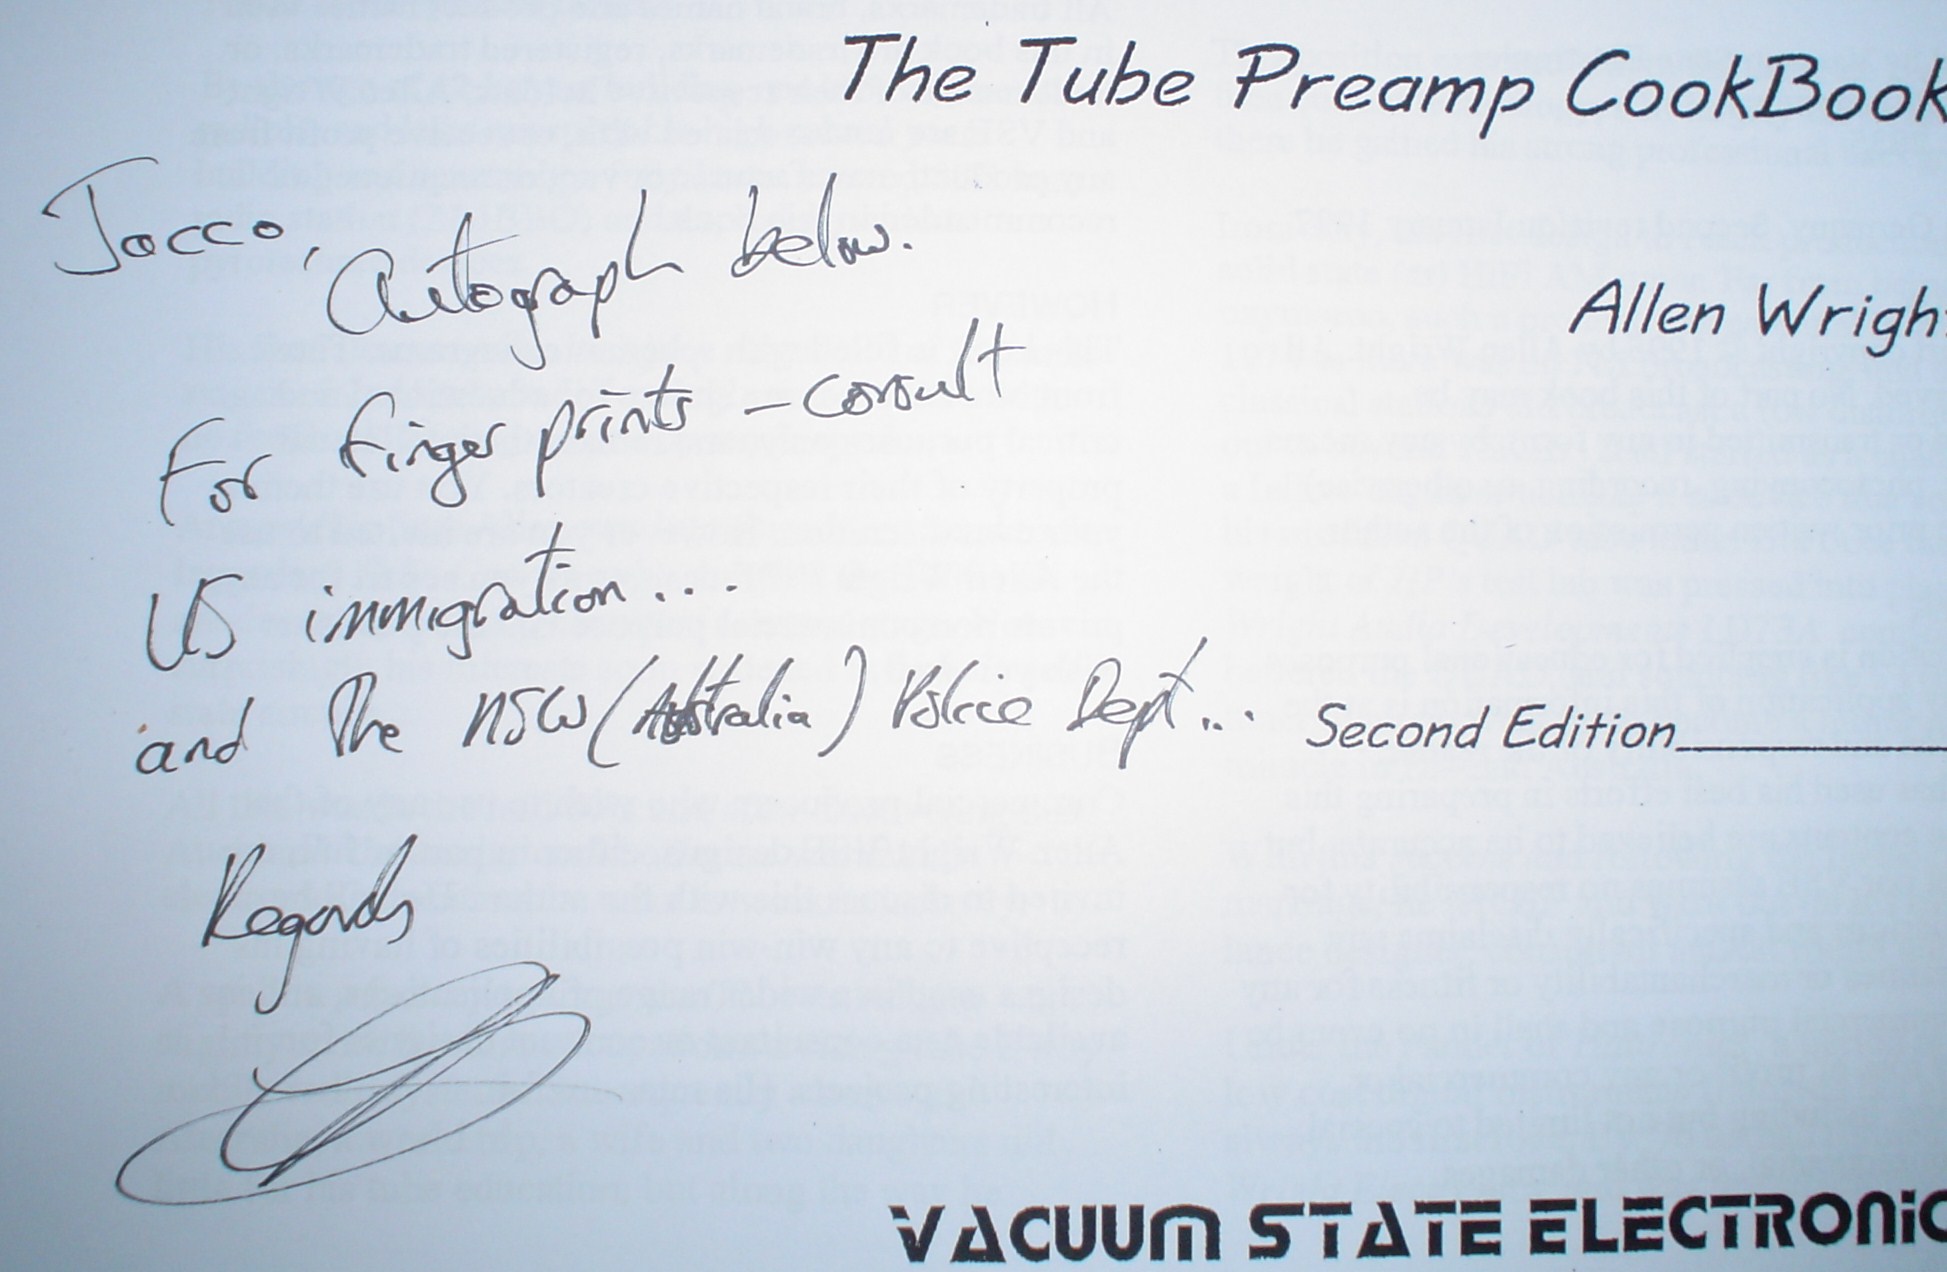 The Tube Preamp CookBook
Allen Wrigh
Jacco, Autograph below.
For finger prints – consult
US immigration....
and The NSW (Australia) Police Dept...
Second Edition
Regards
VACUUM STATE ELECTRONIC